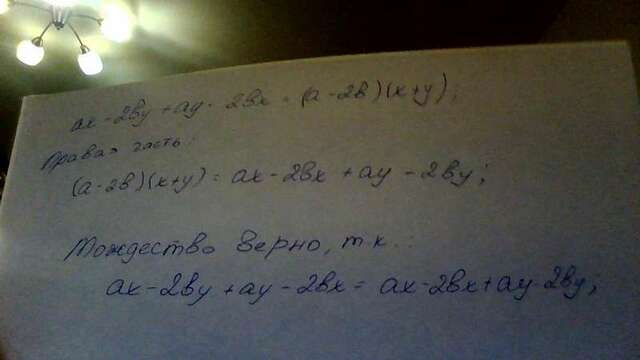 ax - 2вy + ay - 2вx = (a - 2в)(x+y);
Правая часть:
(a - 2в)(x+y) = ax - 2вx + ay - 2вy;
Тождество верно, т.к.:
ax - 2вy + ay - 2вx = ax - 2вx + ay - 2вy;